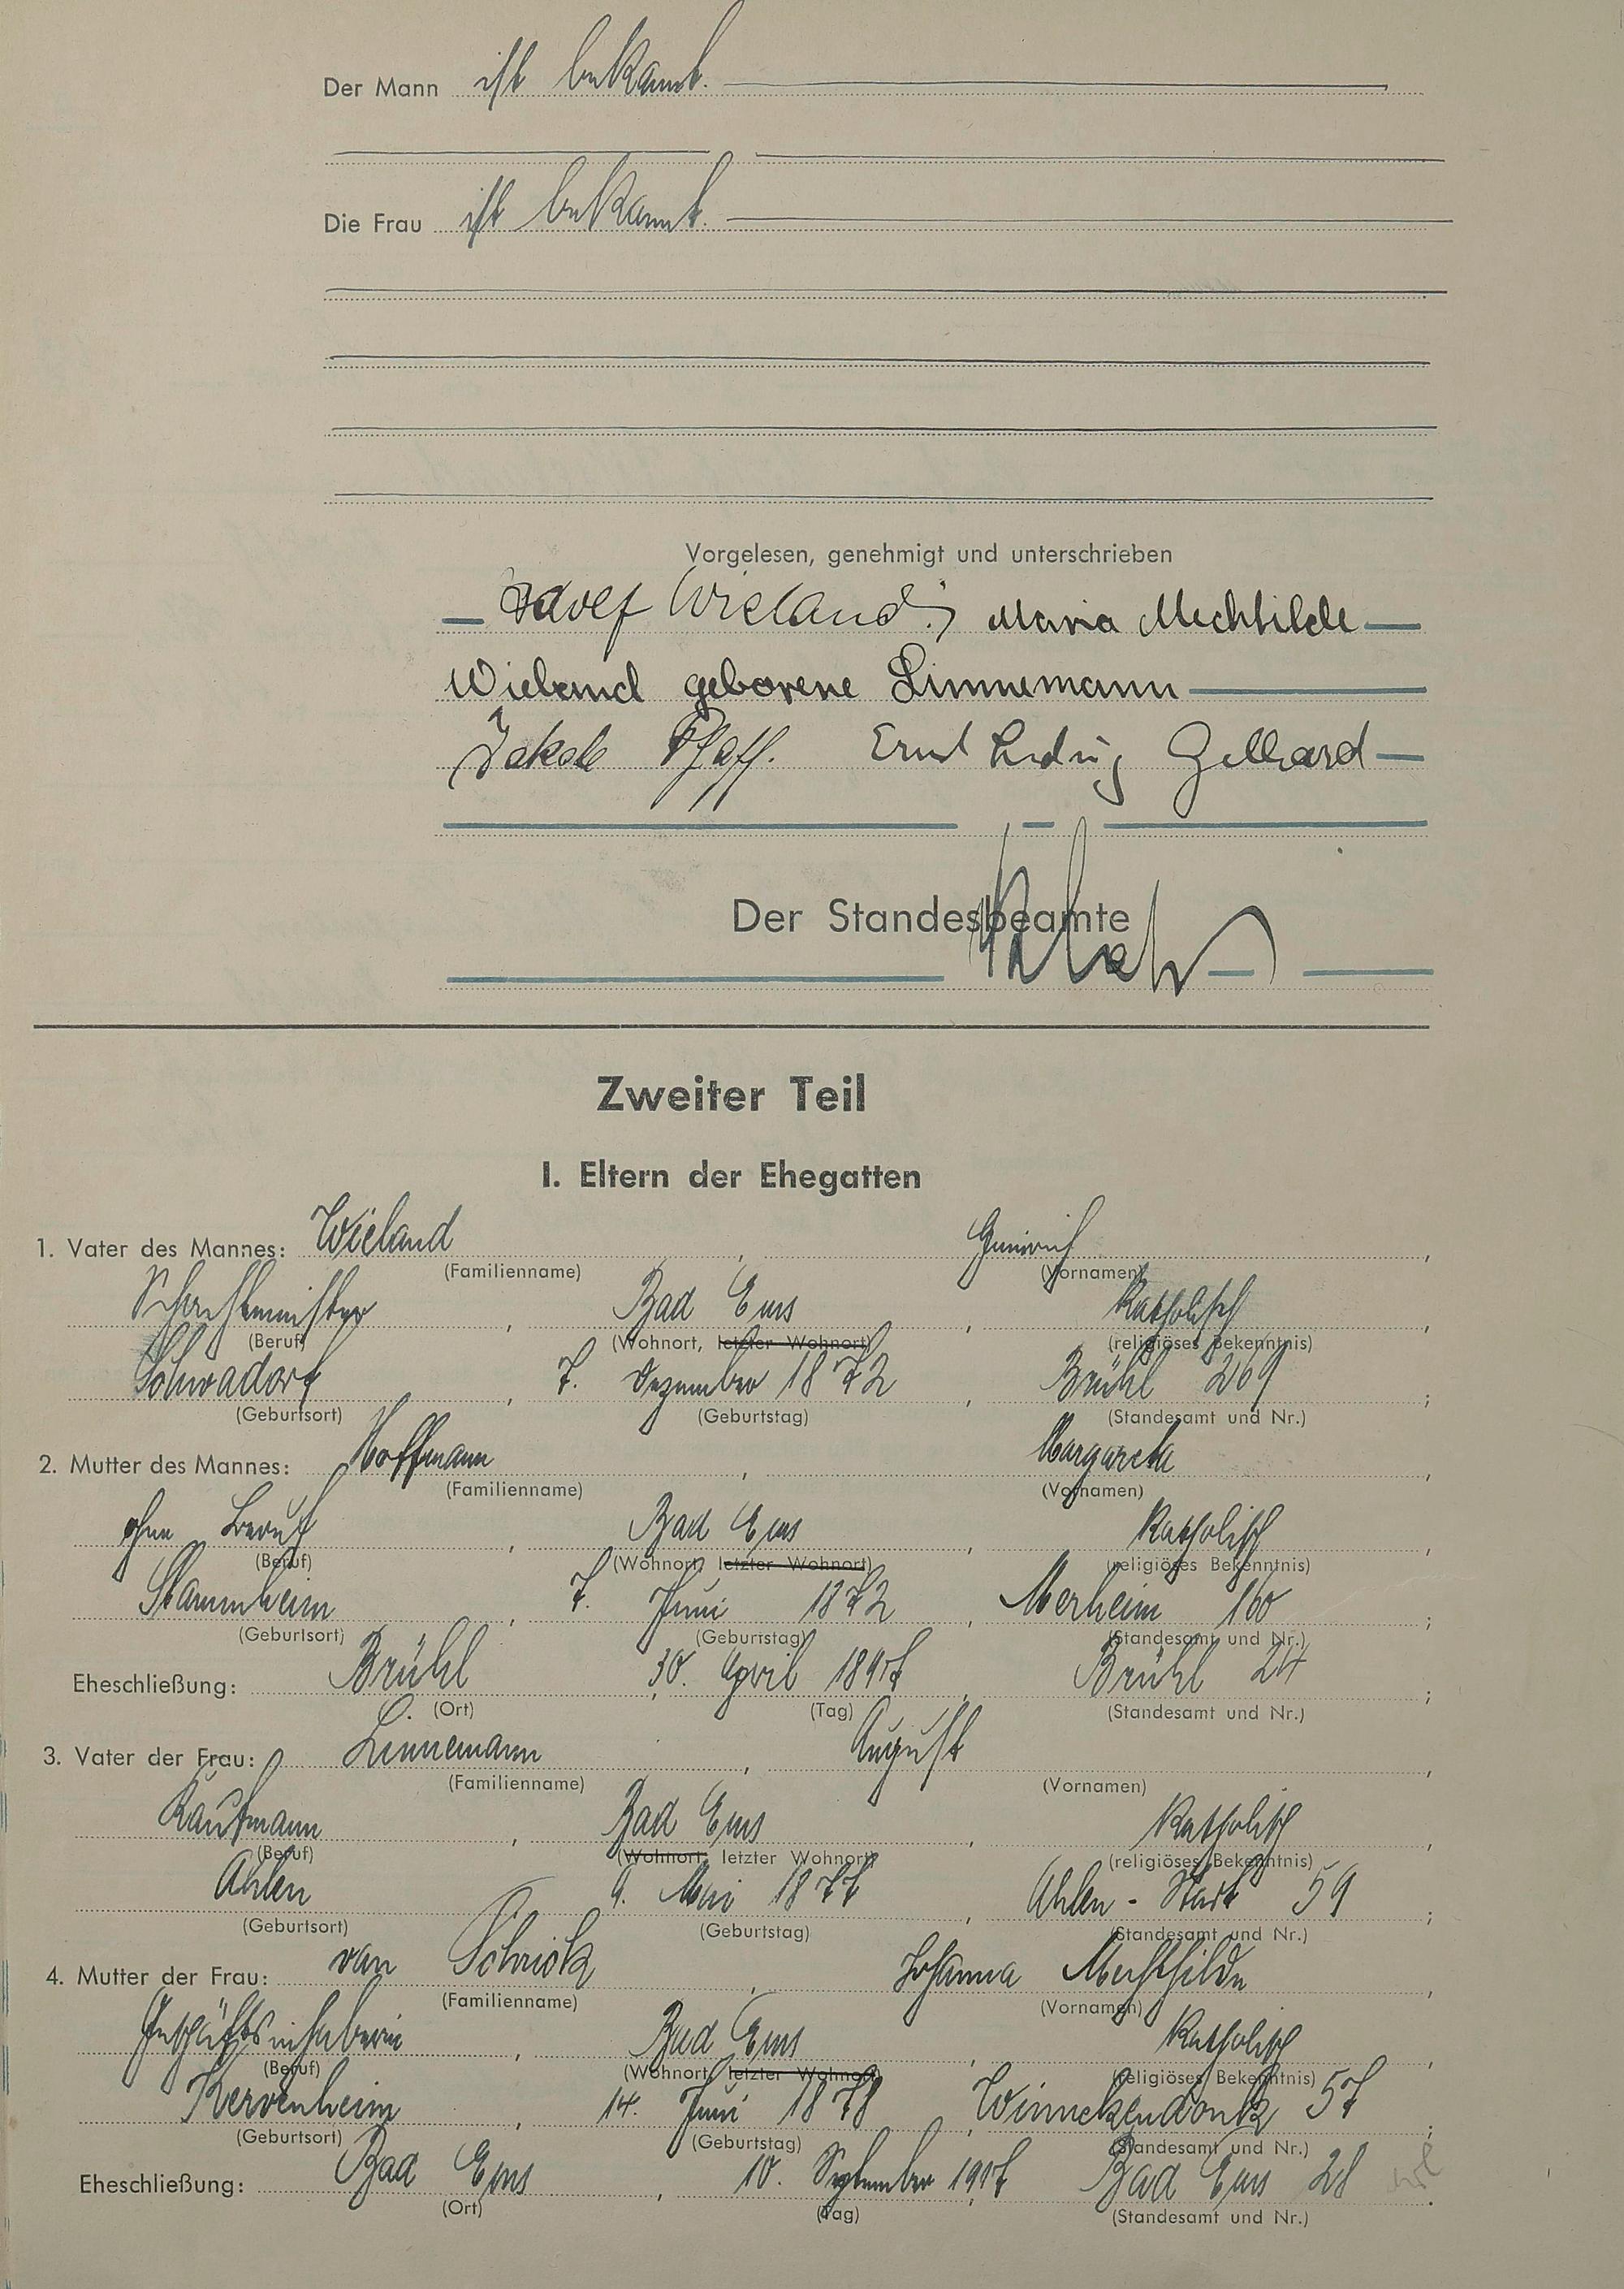 Der Mann ist bekannt.
Die Frau ist bekannt.
Vorgelesen, genehmigt und unterschrieben
Wieland, Maria Mechtilde
Wieland geborene Linnemann
Jakob Pfaff. Ernst Ludwig Gelhard
Der Standesbeamte
Zweiter Teil
I. Eltern der Ehegatten
1. Vater des Mannes: Wieland, Heinrich
(Familienname) (Vornamen)
Schachtmeister, Bad Ems, Katholisch,
(Beruf) (Wohnort, letzter Wohnort) (religiöses Bekenntnis)
Schwadorf, 7. Dezember 1872, Brühl 269;
(Geburtsort) (Geburtstag) (Standesamt und Nr.)
2. Mutter des Mannes: Hoffmann, Margareta,
(Familienname) (Vornamen)
ohne Beruf, Bad Ems, Katholisch,
(Beruf) (Wohnort, letzter Wohnort) (religiöses Bekenntnis)
Stammheim, 7. Juni 1872, Merheim 160;
(Geburtsort) (Geburtstag) (Standesamt und Nr.)
Eheschließung: Brühl, 30. April 1897, Brühl 24;
(Ort) (Tag) (Standesamt und Nr.)
3. Vater der Frau: Linnemann, August,
(Familienname) (Vornamen)
Kaufmann, Bad Ems, Katholisch,
(Beruf) (Wohnort, letzter Wohnort) (religiöses Bekenntnis)
Ahlen 9. Mai 1877, Ahlen - Stadt 59;
(Geburtsort) (Geburtstag) (Standesamt und Nr.)
4. Mutter der Frau: van Schrick, Johanna Mechthilde,
(Familienname) (Vornamen)
Geschäftsinhaberin, Bad Ems, Katholisch,
(Beruf) (Wohnort, letzter Wohnort) (religiöses Bekenntnis)
Kervenheim, 14. Juni 1878, Winnekendonk 57;
(Geburtsort) (Geburtstag) (Standesamt und Nr.)
Eheschließung: Bad Ems, 10. September 1907, Bad Ems 28.
(Ort) (Tag) (Standesamt und Nr.)